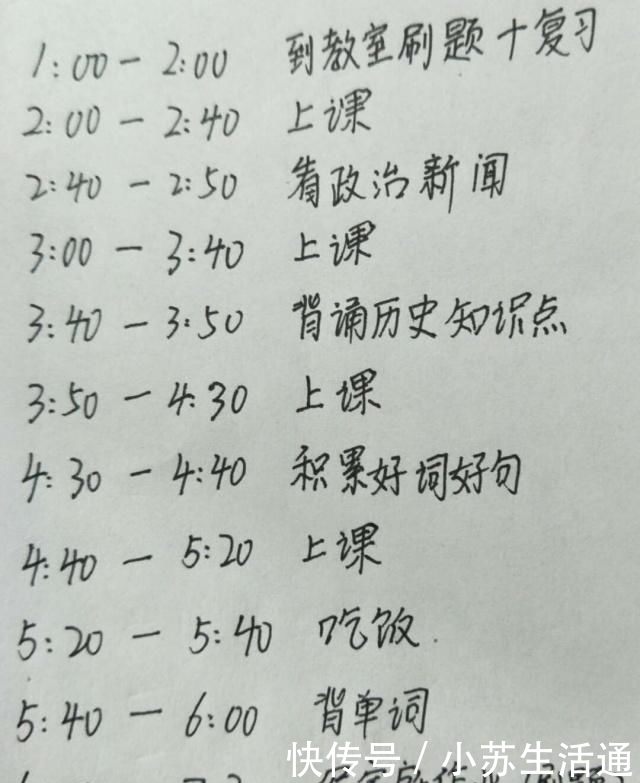 1:00 — 2:00 到教室刷题+复习
2:00 — 2:40 上课
2:40 — 2:50 看政治新闻
3:00 — 3:40 上课
3:40 — 3:50 背诵历史知识点
3:50 — 4:30 上课
4:30 — 4:40 积累好词好句
4:40 — 5:20 上课
5:20 — 5:40 吃饭.
5:40 — 6:00 背单词
快传号/小苏生活通